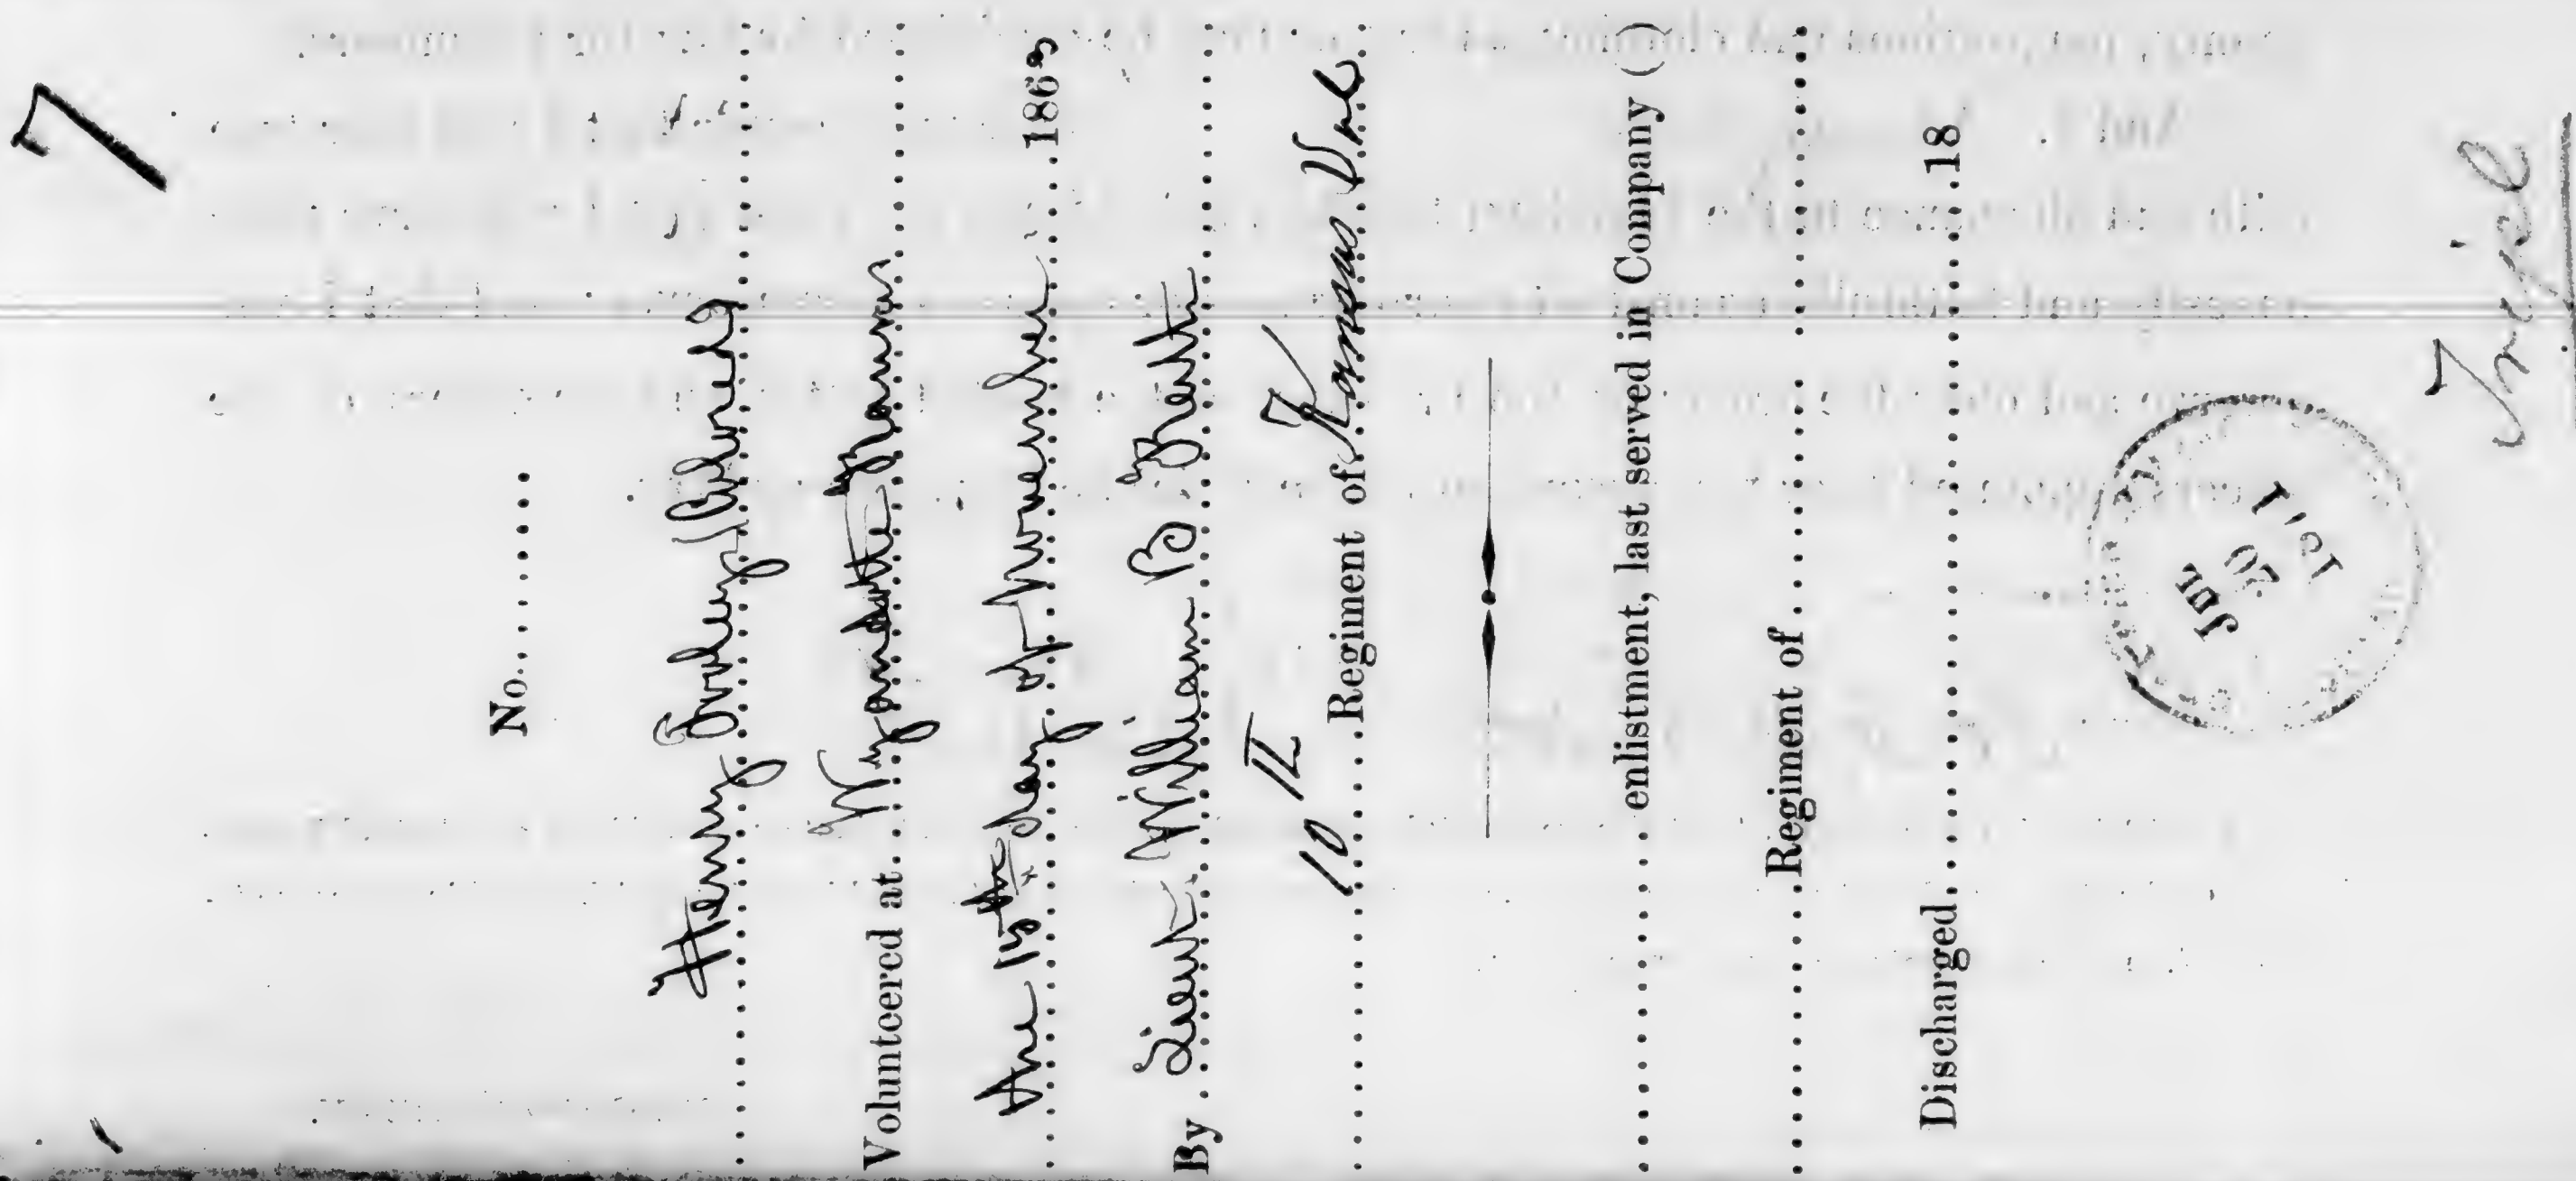 7
No.........
Henry
Volunteered at Wyandotte Kansas
the 15th day of November 1863
By Lieut William B.
10 Regiment of Kansas Vol
enlistment, last served in Company ( )
Regiment of
Discharged 18
JUL
20